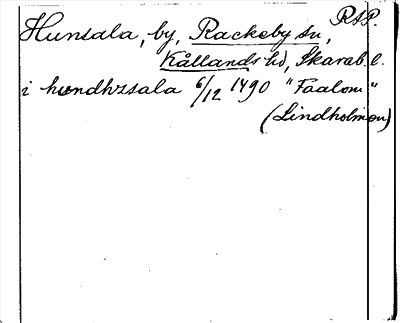 Hunsala, by, Rackeby sn, RAP.
Kållands hd, Skarab. l.
i hundhzsala 6/12 1490 "Faalom"
(Lindholmen)